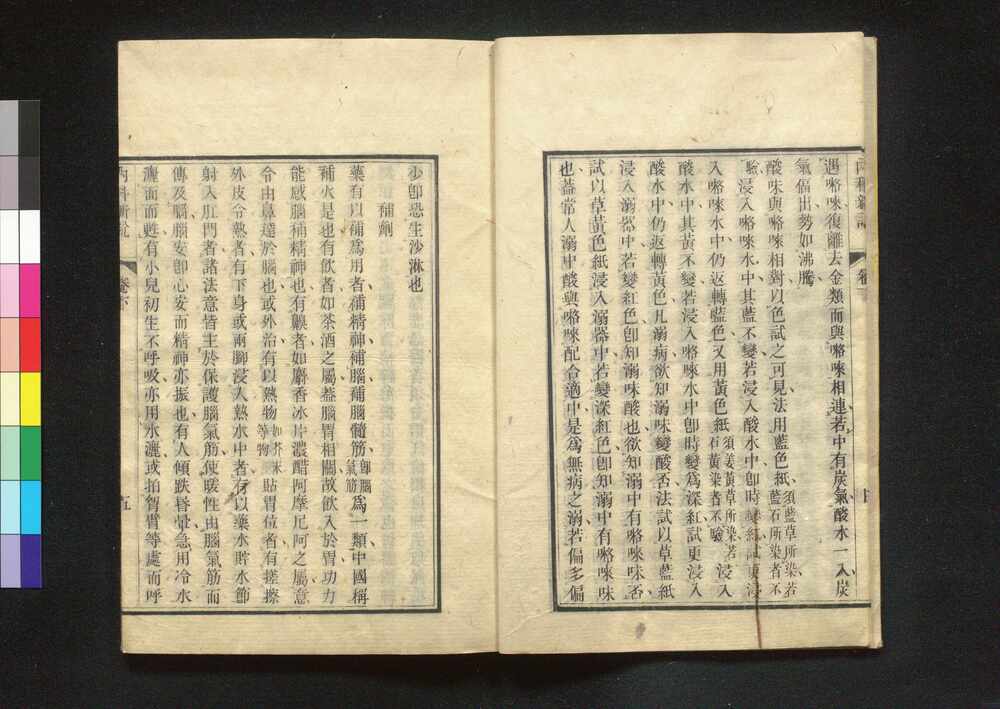 遇咯哚復離去金類而與咯哚相連若中有炭氣酸水一入炭
氣偪出勢如沸騰
酸味與咯哚相對以色試之可見法用藍色紙須藍草所染若藍石所染者不
驗浸入咯哚水中其藍不變若浸入酸水中卽時變紅試更浸
入咯哚水中仍返轉藍色又用黃色紙須姜黃草所染若石黃染者不驗浸入
酸水中其黃不變若浸入咯哚水中卽時變爲深紅試更浸入
酸水中仍返轉黃色凡溺病欲知溺味變酸否法試以草藍紙
浸入溺器中若變紅色卽知溺味酸也欲知溺中有咯哚味否
試以草黃色紙浸入溺器中若變深紅色卽知溺中有咯哚味
也蓋常人溺中酸與咯哚配合適中是爲無病之溺若偏多偏
少卽恐生沙淋也
補劑
藥有以補爲用者補精神補腦補腦髓筋卽腦氣筋爲一類中國稱
補火是也有飲者如茶酒之屬蓋腦胃相關故飲入於胃功力
能感腦補精神也有齅者如麝香冰片濃醋阿摩尼阿之屬意
令由鼻達於腦也或外治有以熱物如芥末等物貼胃位者有搓擦
外皮令熱者有下身或兩腳浸入熱水中者有以藥水貯水節
射入肛門者諸法意皆主於保護腦氣筋使暖性由腦氣筋而
傳及腦腦安卽心安而精神亦振也有人傾跌昬暈急用冷水
灑面而甦有小兒初生不呼吸亦用水灑或拍臀胃等處而呼
內科新說 卷下 五